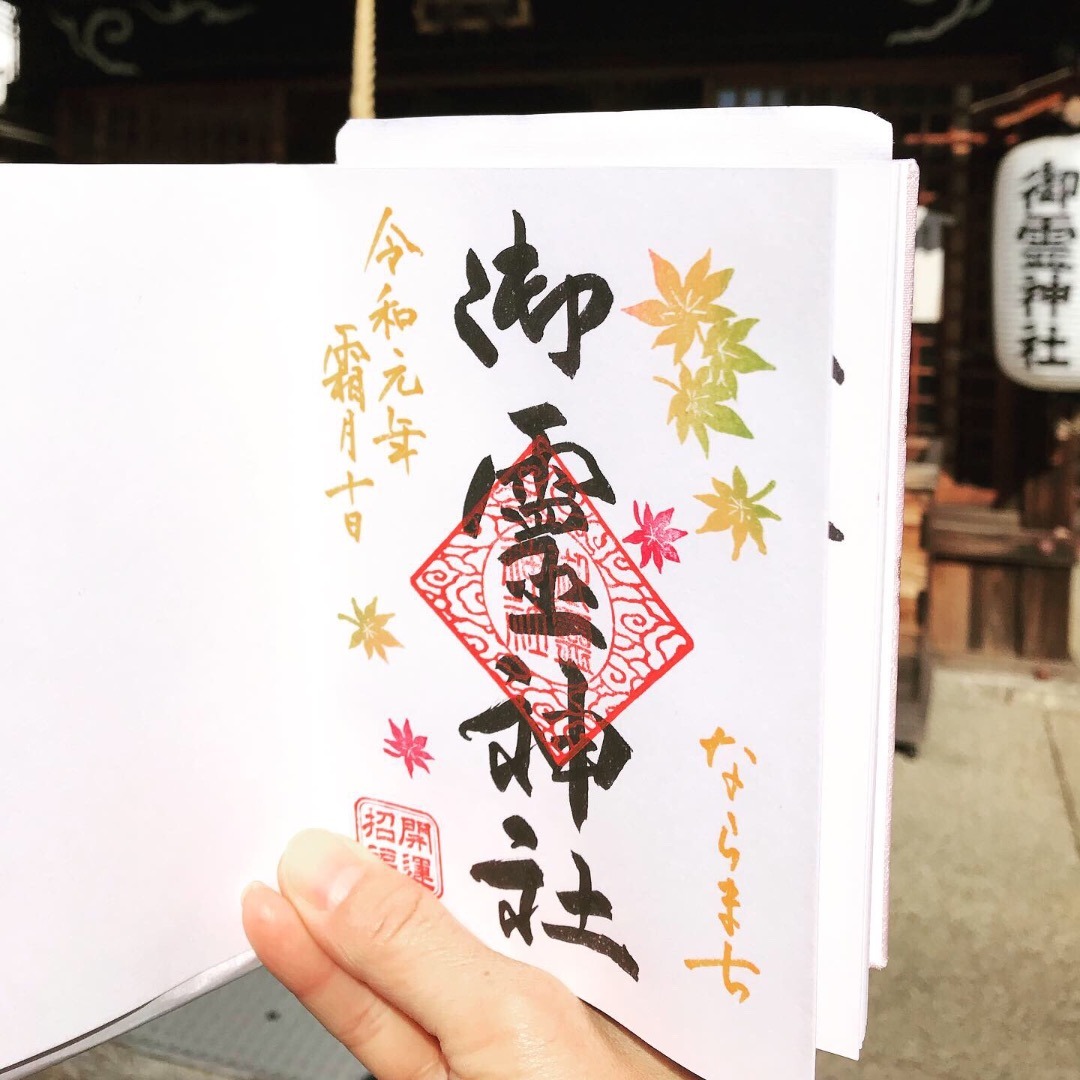 ならまち
御霊神社
令和元年
霜月十日
開運
招福
御霊神社